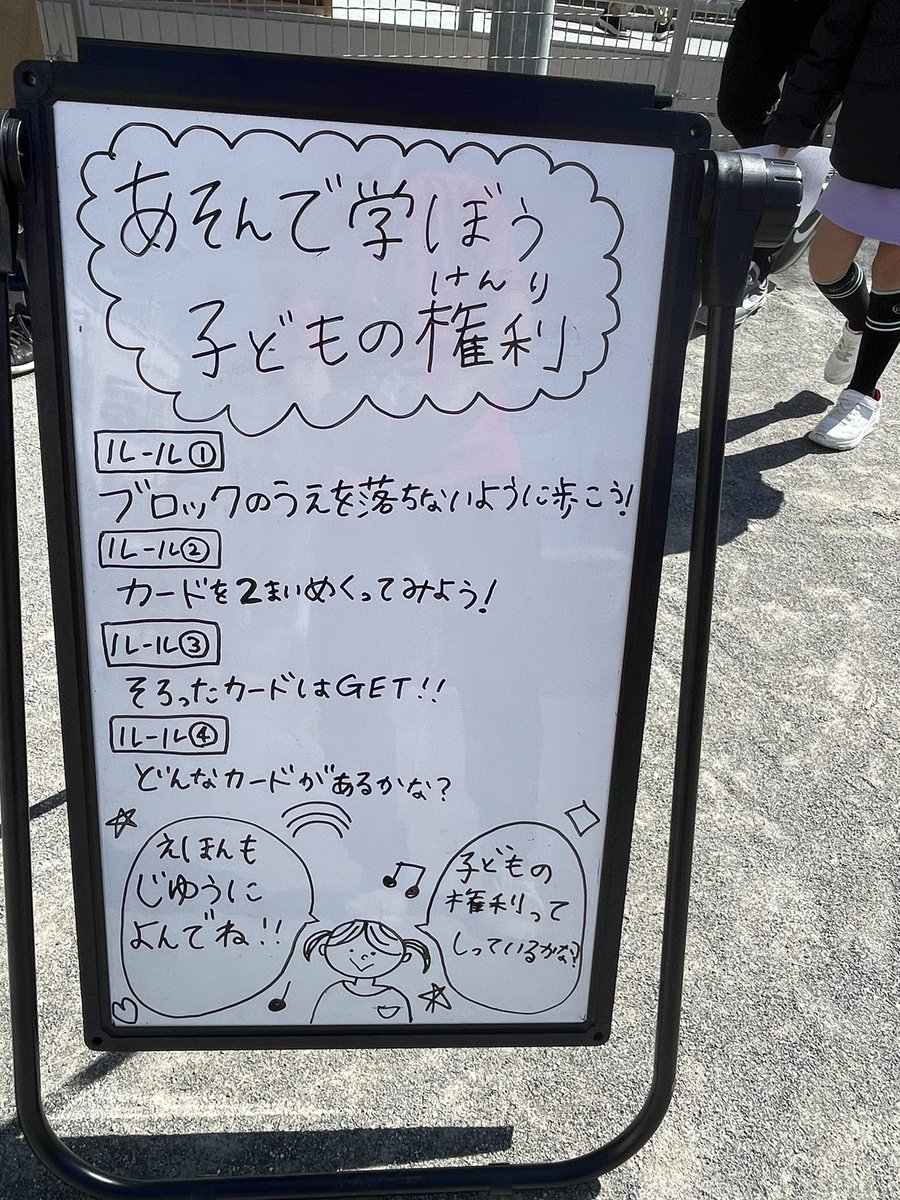 あそんで学ぼう
けんり
子どもの権利
ルール①
ブロックのうえを落ちないように歩こう!
ルール②
カードを2まいめくってみよう!
ルール③
そろったカードはGET!!
ルール④
どんなカードがあるかな?
えほんも
じゆうに
よんでね!!
子どもの
権利って
しっているかな?